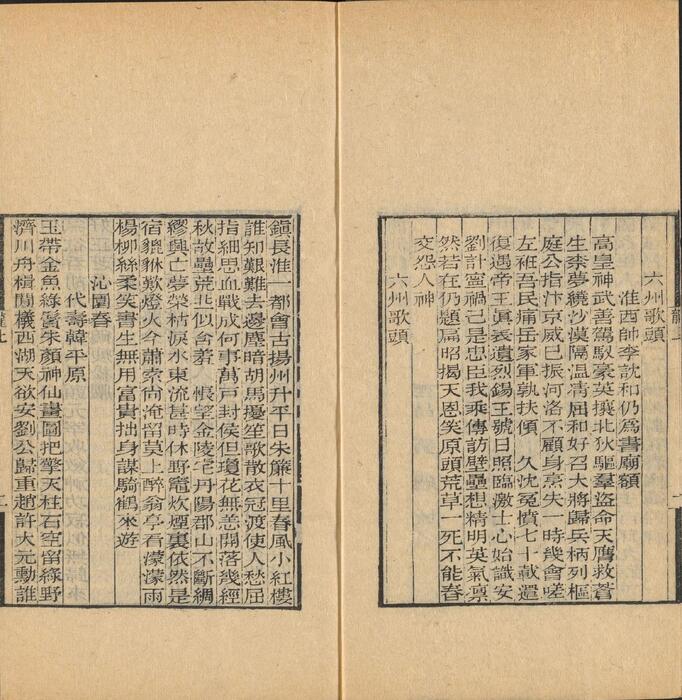 六州歌頭
淮西帥李訦和仍爲書廟額
高皇神武善駕馭豪英攘北狄驅羣盜命天膺救蒼
生柰夢繞沙漠隔溫凊屈和好召大將歸兵柄列樞
庭公指汴京威巳振河洛不顧身烹失一時幾會嗟
左袵吾民痛岳家軍孰扶傾　久沈冤憤七十載還
復遇帝王眞義遺烈錫王號日照臨激士心始識安
劉計寧禍己是忠臣我乘傳訪壁壘想精明英氣凛
然若在仍題扁昭揭天恩笑原頭荒草一死不能春
交怨人神
六州歌頭
鎭長淮一都會古揚州升平日朱簾十里春風小紅樓
誰知艱難去邊塵暗胡馬擾笙歌散衣冠渡使人愁屈
指細思血戰成何事萬戸封侯但瓊花無恙開落幾經
秋故壘荒丘似含羞　悵望金陵宅丹陽郡山不斷綢
繆興亡夢榮枯淚水東流甚時休野竈炊煙裏依然是
宿貔貅歎燈火今蕭索尚淹留莫上醉翁亭看濛濛雨
楊柳絲柔笑書生無用富貴拙身謀騎鶴來遊
沁園春
代壽韓平原
玉帶金魚綠鬢朱顔神仙畫圖把擎天柱石空留綠野
濟川舟楫閒艤西湖天欲安劉公歸重趙許大元勳誰